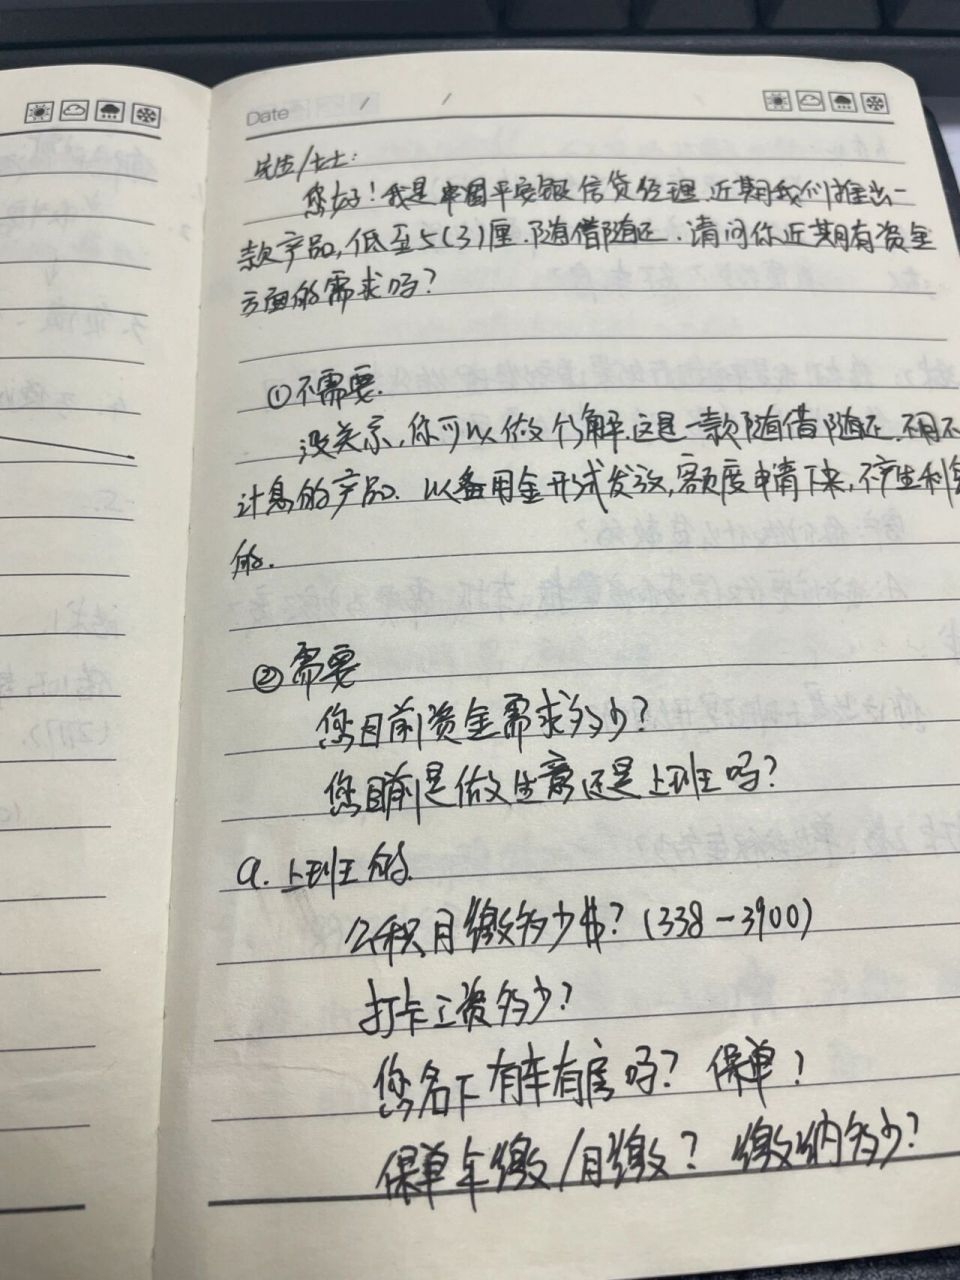 Date / /
先生/女士:
您好!我是中国平安银信贷经理,近期我们推出一
款产品,低至5(3)厘.随借随还.请问你近期有资金
方面的需求吗?
①不需要.
没关系,你可以做个了解.这是一款随借随还.不用不
计息的产品.以备用金形式发放,额度申请下来,不产生利息
的.
②需要
您目前资金需求多少?
您目前是做生意还是上班吗?
a.上班的.
公积月缴多少$?(338-3900)
打卡工资多少?
您名下有车有房吗? 保单?
保单年缴/月缴? 缴纳多少?